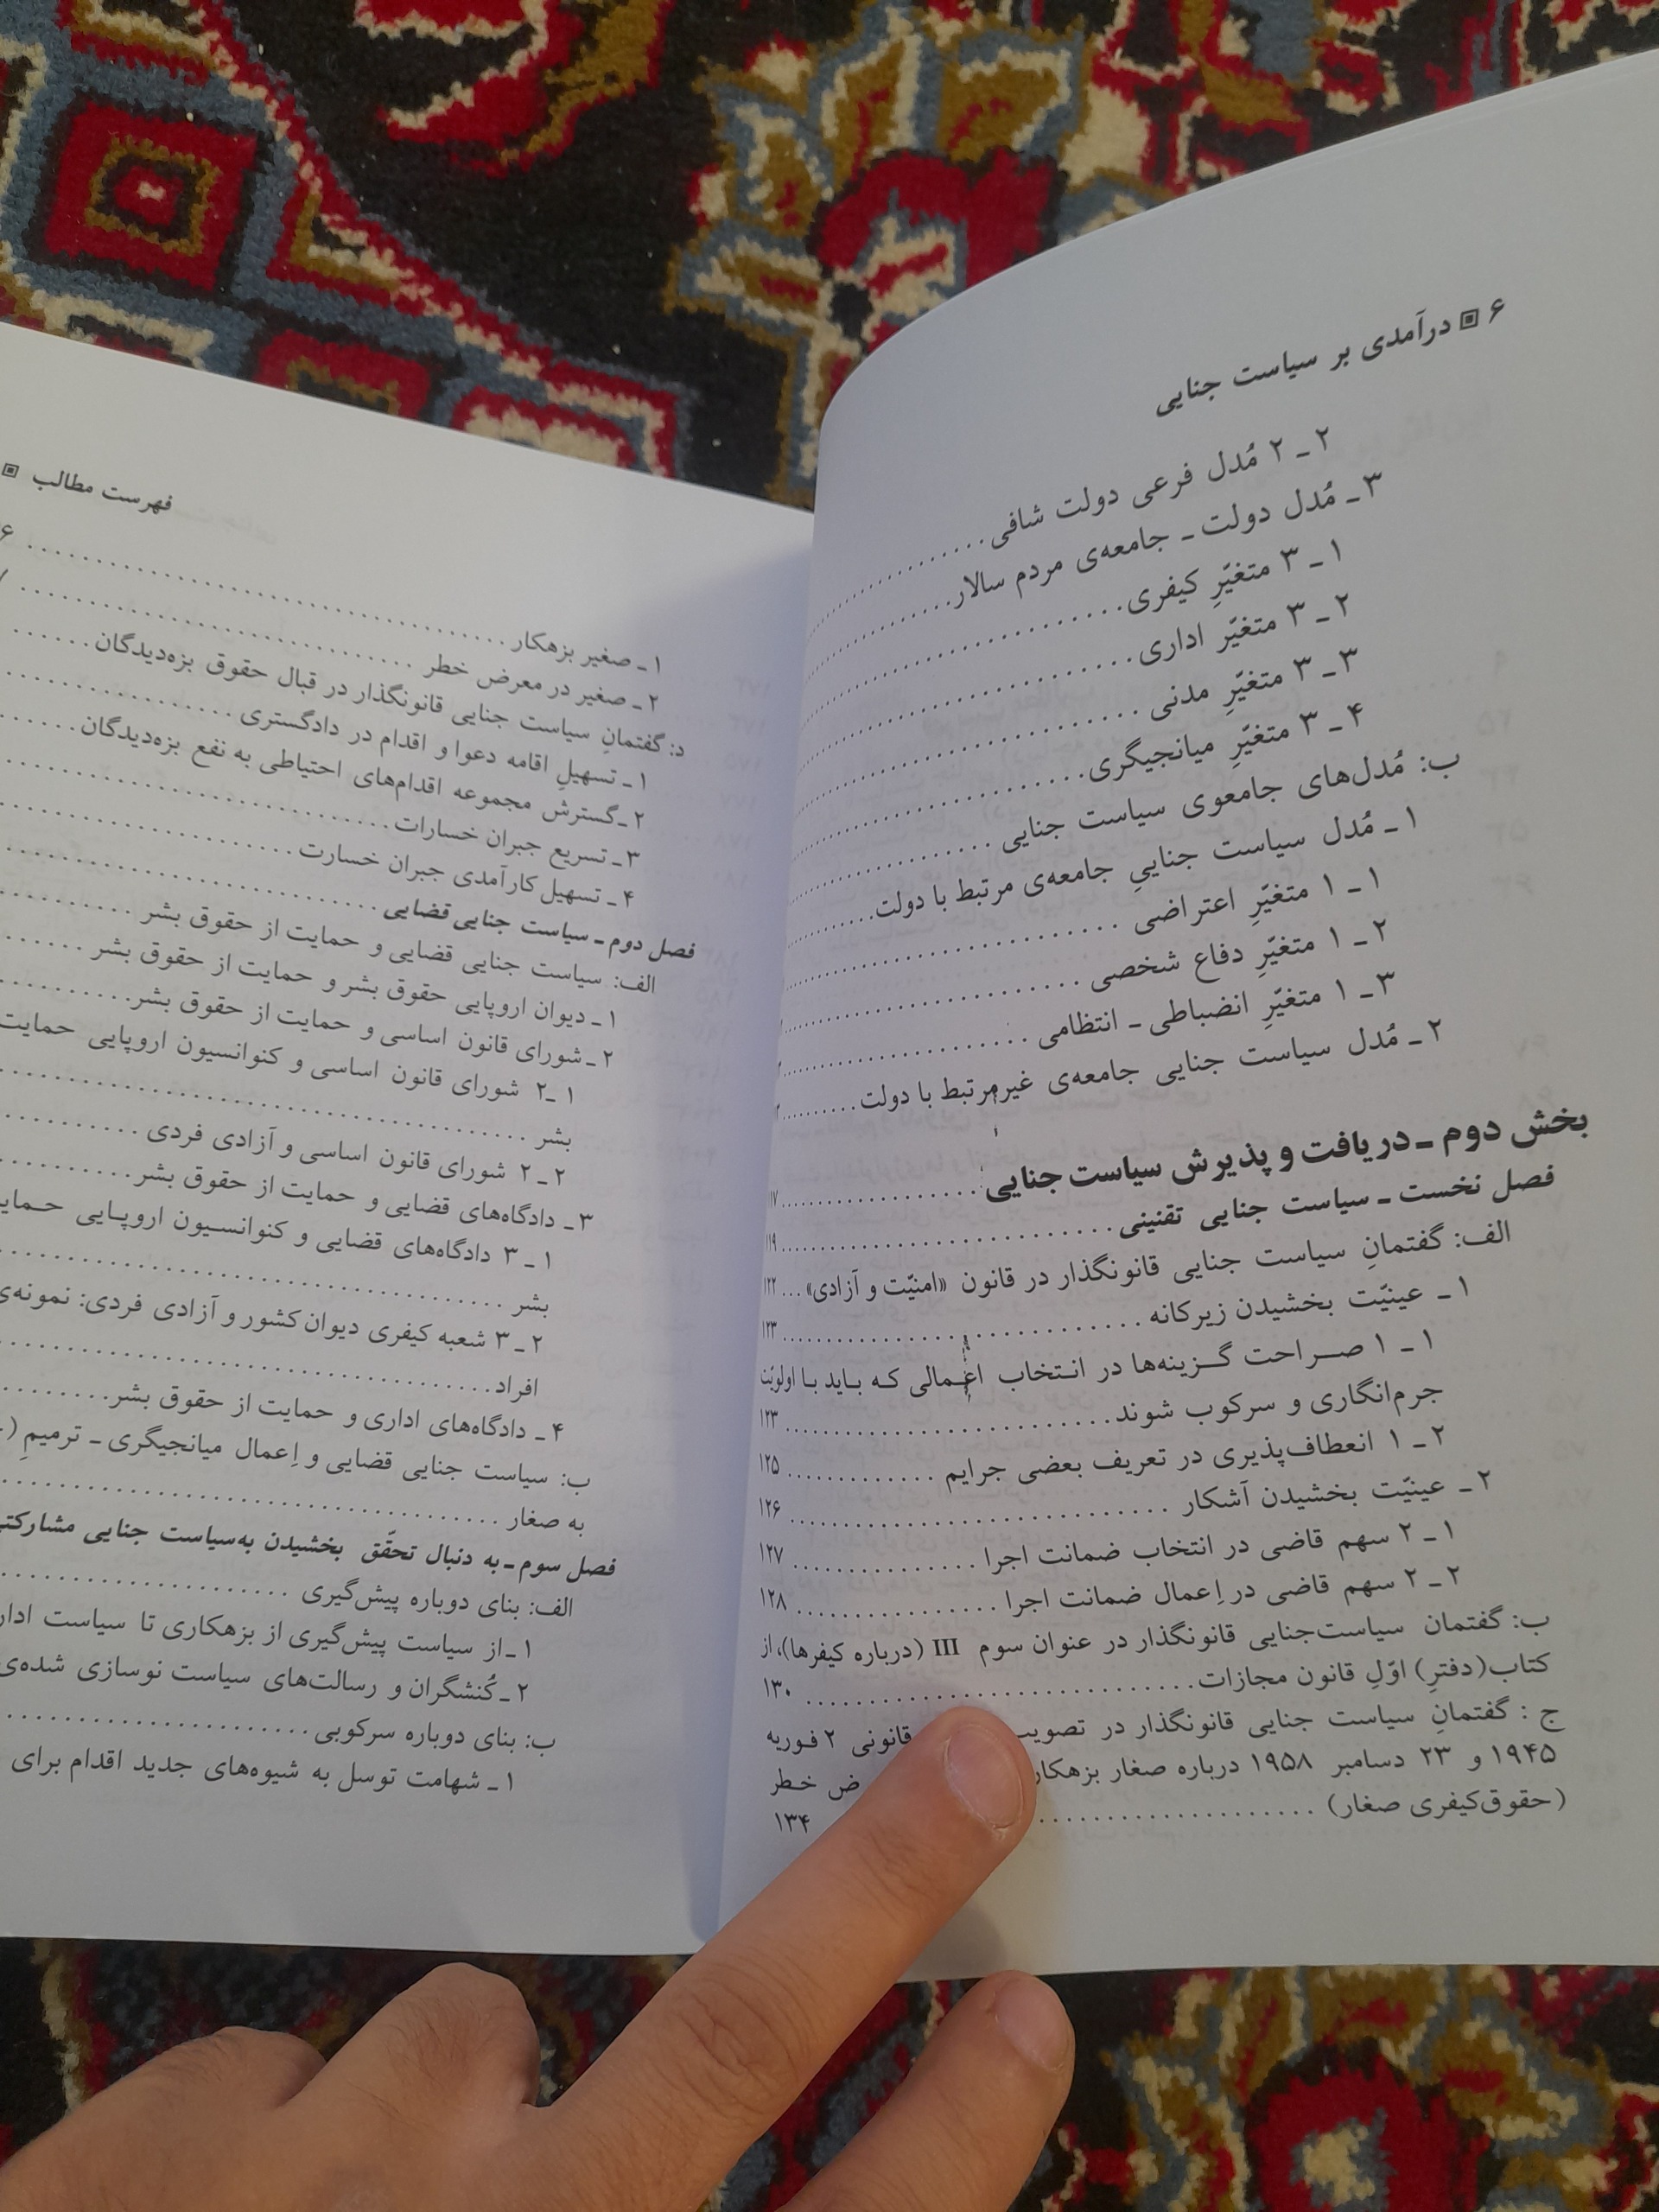 ۶ ▣ درآمدی بر سیاست جنایی
۲ ـ ۲ مُدل فرعی دولت شافی
۳ ـ مُدل دولت ـ جامعه‌ی مردم سالار
۱ ـ ۳ متغیّرِ کیفری
۲ ـ ۳ متغیّر اداری
۳ ـ ۳ متغیّرِ مدنی
۴ ـ ۳ متغیّرِ میانجیگری
ب: مُدل‌های جامعوی سیاست جنایی
۱ ـ مُدل سیاست جناییِ جامعه‌ی مرتبط با دولت
۱ ـ ۱ متغیّرِ اعتراضی
۲ ـ ۱ متغیّرِ دفاع شخصی
۳ ـ ۱ متغیّرِ انضباطی ـ انتظامی
۲ ـ مُدل سیاست جنایی جامعه‌ی غیرمرتبط با دولت
بخش دوم ـ دریافت و پذیرش سیاست جنایی
فصل نخست ـ سیاست جنایی تقنینی ۱۱۹
الف: گفتمانِ سیاست جنایی قانونگذار در قانون «امنیّت و آزادی» ... ۱۲۲
۱ ـ عینیّت بخشیدن زیرکانه ۱۲۳
۱ ـ ۱ صراحت گزینه‌ها در انتخاب اعمالی که باید با اولویّت
جرم‌انگاری و سرکوب شوند ۱۲۳
۲ ـ ۱ انعطاف‌پذیری در تعریف بعضی جرایم ۱۲۵
۲ ـ عینیّت بخشیدن آشکار ۱۲۶
۱ ـ ۲ سهم قاضی در انتخاب ضمانت اجرا ۱۲۷
۲ ـ ۲ سهم قاضی در اِعمال ضمانت اجرا ۱۲۸
ب: گفتمان سیاست‌جنایی قانونگذار در عنوان سوم III (درباره کیفرها)، از
کتاب (دفترِ) اوّلِ قانون مجازات ۱۳۰
ج : گفتمانِ سیاست جنایی قانونگذار در تصویب قانونی ۲ فوریه
۱۹۴۵ و ۲۳ دسامبر ۱۹۵۸ درباره صغار بزهکار ض خطر
(حقوق‌کیفری صغار) ۱۳۴
فهرست مطالب ▣
۱ ـ صغیر بزهکار
۲ ـ صغیر در معرض خطر
د: گفتمانِ سیاست جنایی قانونگذار در قبال حقوق بزه‌دیدگان
۱ ـ تسهیلِ اقامه دعوا و اقدام در دادگستری
۲ ـ گسترش مجموعه اقدام‌های احتیاطی به نفع بزه‌دیدگان
۳ ـ تسریع جبران خسارات
۴ ـ تسهیل کارآمدی جبران خسارت
فصل دوم ـ سیاست جنایی قضایی
الف: سیاست جنایی قضایی و حمایت از حقوق بشر
۱ ـ دیوان اروپایی حقوق بشر و حمایت از حقوق بشر
۲ ـ شورای قانون اساسی و حمایت از حقوق بشر
۱ ـ ۲ شورای قانون اساسی و کنوانسیون اروپایی حمایت
بشر
۲ ـ ۲ شورای قانون اساسی و آزادی فردی
۳ ـ دادگاه‌های قضایی و حمایت از حقوق بشر
۱ ـ ۳ دادگاه‌های قضایی و کنوانسیون اروپایی
بشر
۲ ـ ۳ شعبه کیفری دیوان کشور و آزادی فردی: نمونه‌ی
افراد
۴ ـ دادگاه‌های اداری و حمایت از حقوق بشر
ب: سیاست جنایی قضایی و اِعمال میانجیگری ـ ترمیمِ
به صغار
فصل سوم ـ به دنبال تحقّق بخشیدن به‌سیاست جنایی
الف: بنای دوباره پیش‌گیری
۱ ـ از سیاست پیش‌گیری از بزهکاری تا سیاست
۲ ـ کُنشگران و رسالت‌های سیاست نوسازی شده‌ی
ب: بنای دوباره سرکوبی
۱ ـ شهامت توسل به شیوه‌های جدید اقدام برای